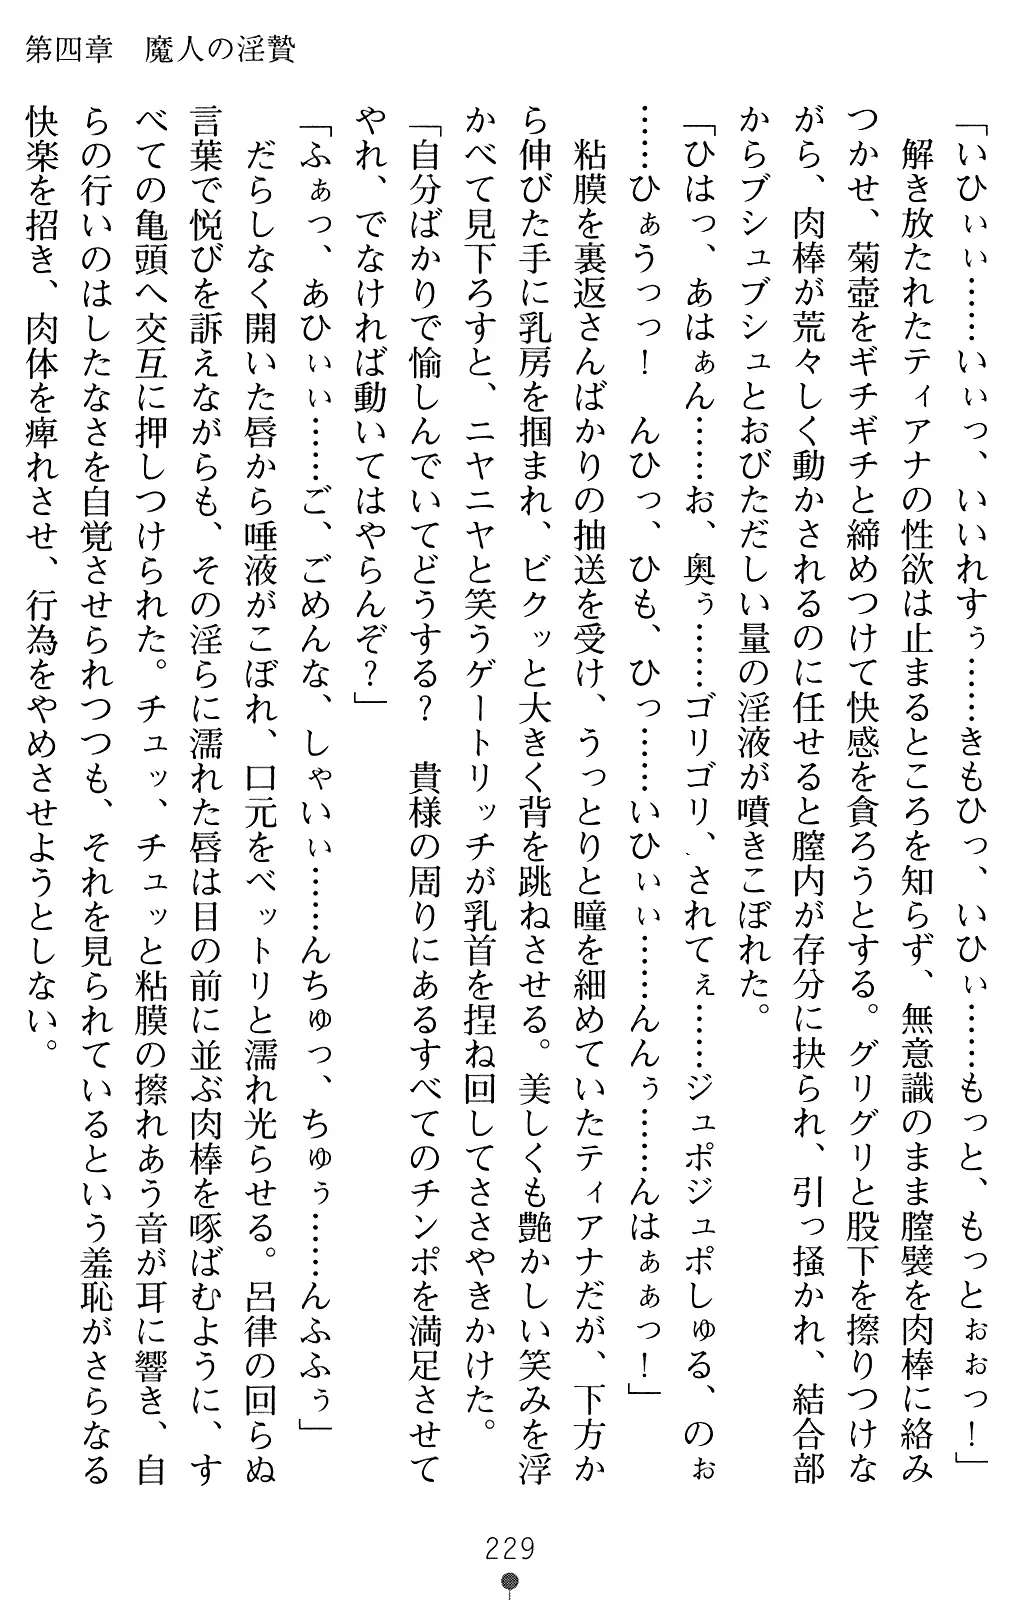 第四章　魔人の淫贄
「いひぃぃ……いぃっ、いいれすぅ……きもひっ、いひぃ……もっと、もっとぉぉっ！」
　解き放たれたティアナの性欲は止まるところを知らず、無意識のまま膣襞を肉棒に絡み
つかせ、菊壺をギチギチと締めつけて快感を貪ろうとする。グリグリと股下を擦りつけな
がら、肉棒が荒々しく動かされるのに任せると膣内が存分に抉られ、引っ掻かれ、結合部
からブシュブシュとおびただしい量の淫液が噴きこぼれた。
「ひはっ、あはぁん……お、奥ぅ……ゴリゴリ、されてぇ……ジュポジュポしゅる、のぉ
……ひぁうっっ！　んひっ、ひも、ひっ……いひぃぃ……んんぅ……んはぁぁっ！」
　粘膜を裏返さんばかりの抽送を受け、うっとりと瞳を細めていたティアナだが、下方か
ら伸びた手に乳房を掴まれ、ビクッと大きく背を跳ねさせる。美しくも艶かしい笑みを浮
かべて見下ろすと、ニヤニヤと笑うゲートリッチが乳首を捏ね回してささやきかけた。
「自分ばかりで愉しんでいてどうする？　貴様の周りにあるすべてのチンポを満足させて
やれ、でなければ動いてはやらんぞ？」
「ふぁっ、あひぃぃ……ご、ごめんな、しゃいぃ……んちゅっ、ちゅぅ……んふふぅ」
　だらしなく開いた唇から唾液がこぼれ、口元をベットリと濡れ光らせる。呂律の回らぬ
言葉で悦びを訴えながらも、その淫らに濡れた唇は目の前に並ぶ肉棒を啄ばむように、す
べての亀頭へ交互に押しつけられた。チュッ、チュッと粘膜の擦れあう音が耳に響き、自
らの行いのはしたなさを自覚させられつつも、それを見られているという羞恥がさらなる
快楽を招き、肉体を痺れさせ、行為をやめさせようとしない。
229